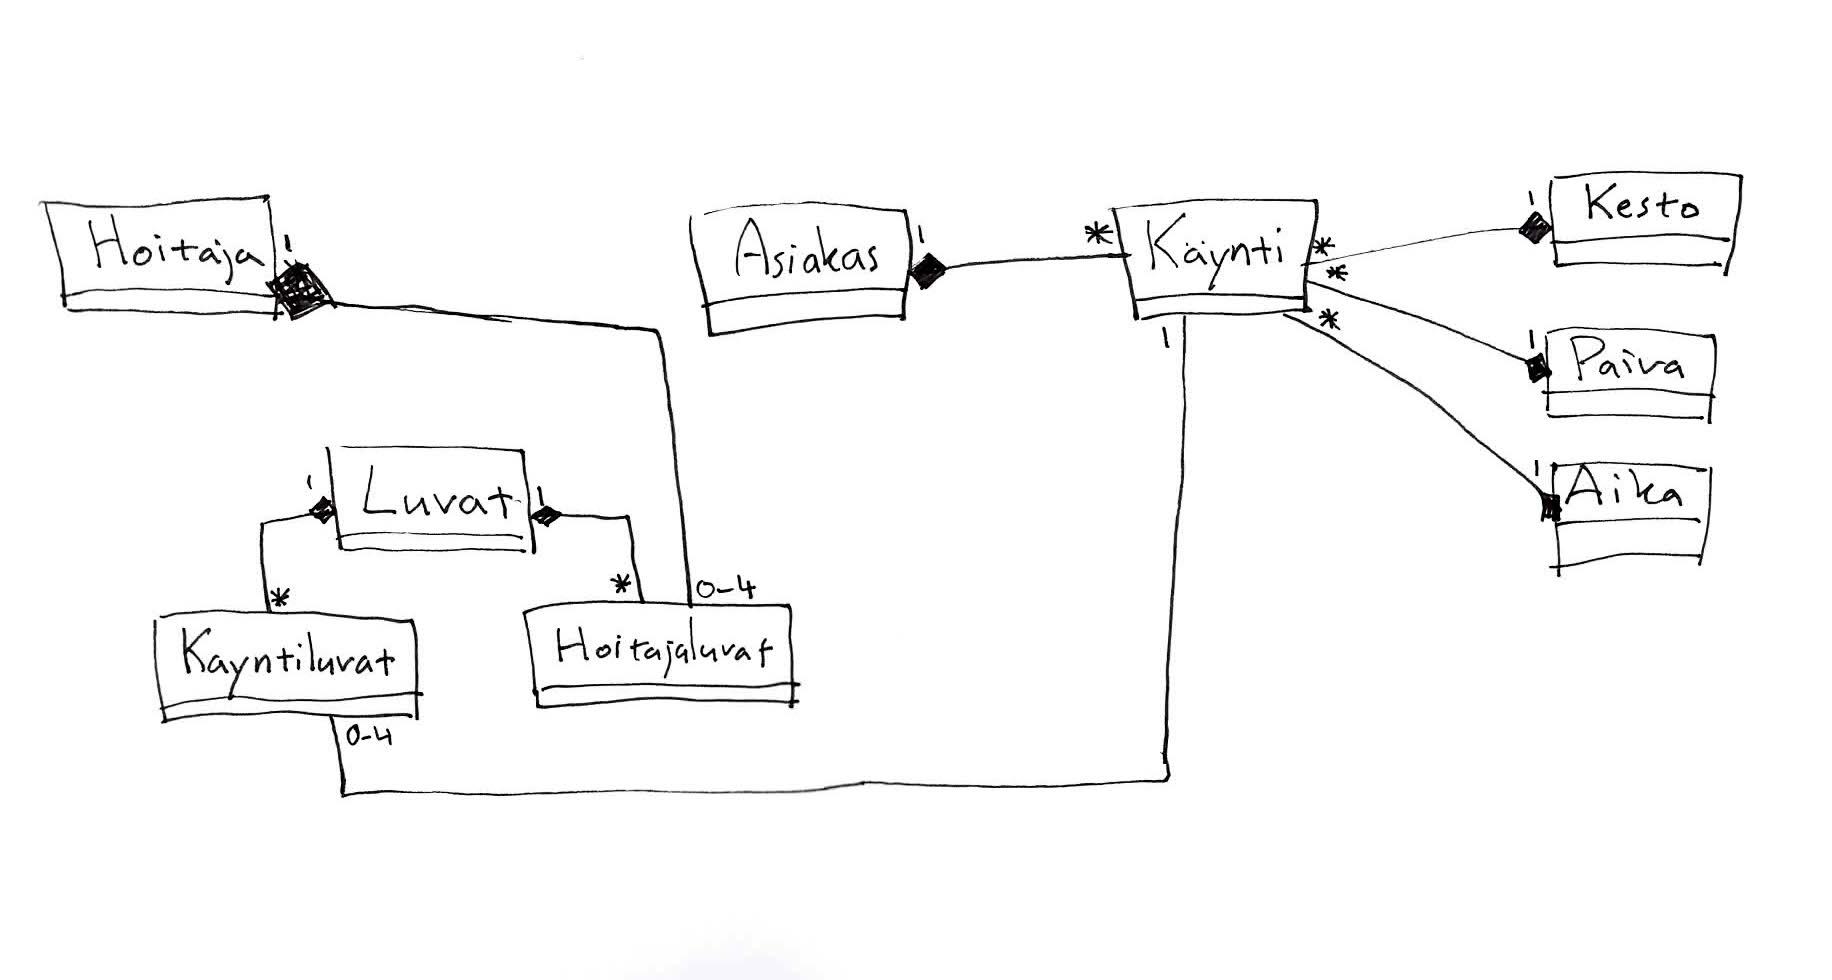 Hoitaja
1
Asiakas
1
*
Käynti
*
*
*
1
1
Kesto
1
Paiva
1
Aika
Luvat
1
1
*
*
0-4
Kayntiluvat
Hoitajaluvat
0-4